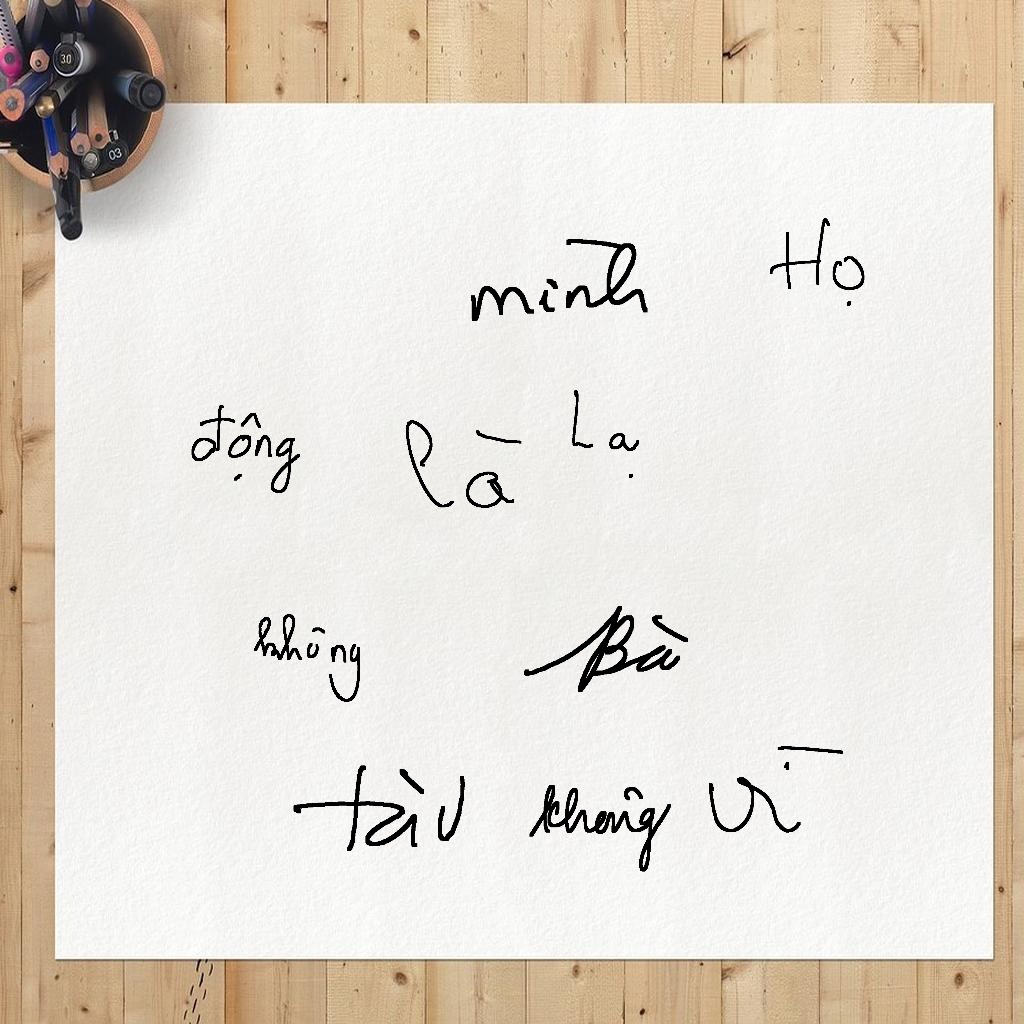 mình Họ
động là Lạ
không Bà
tàu không vì